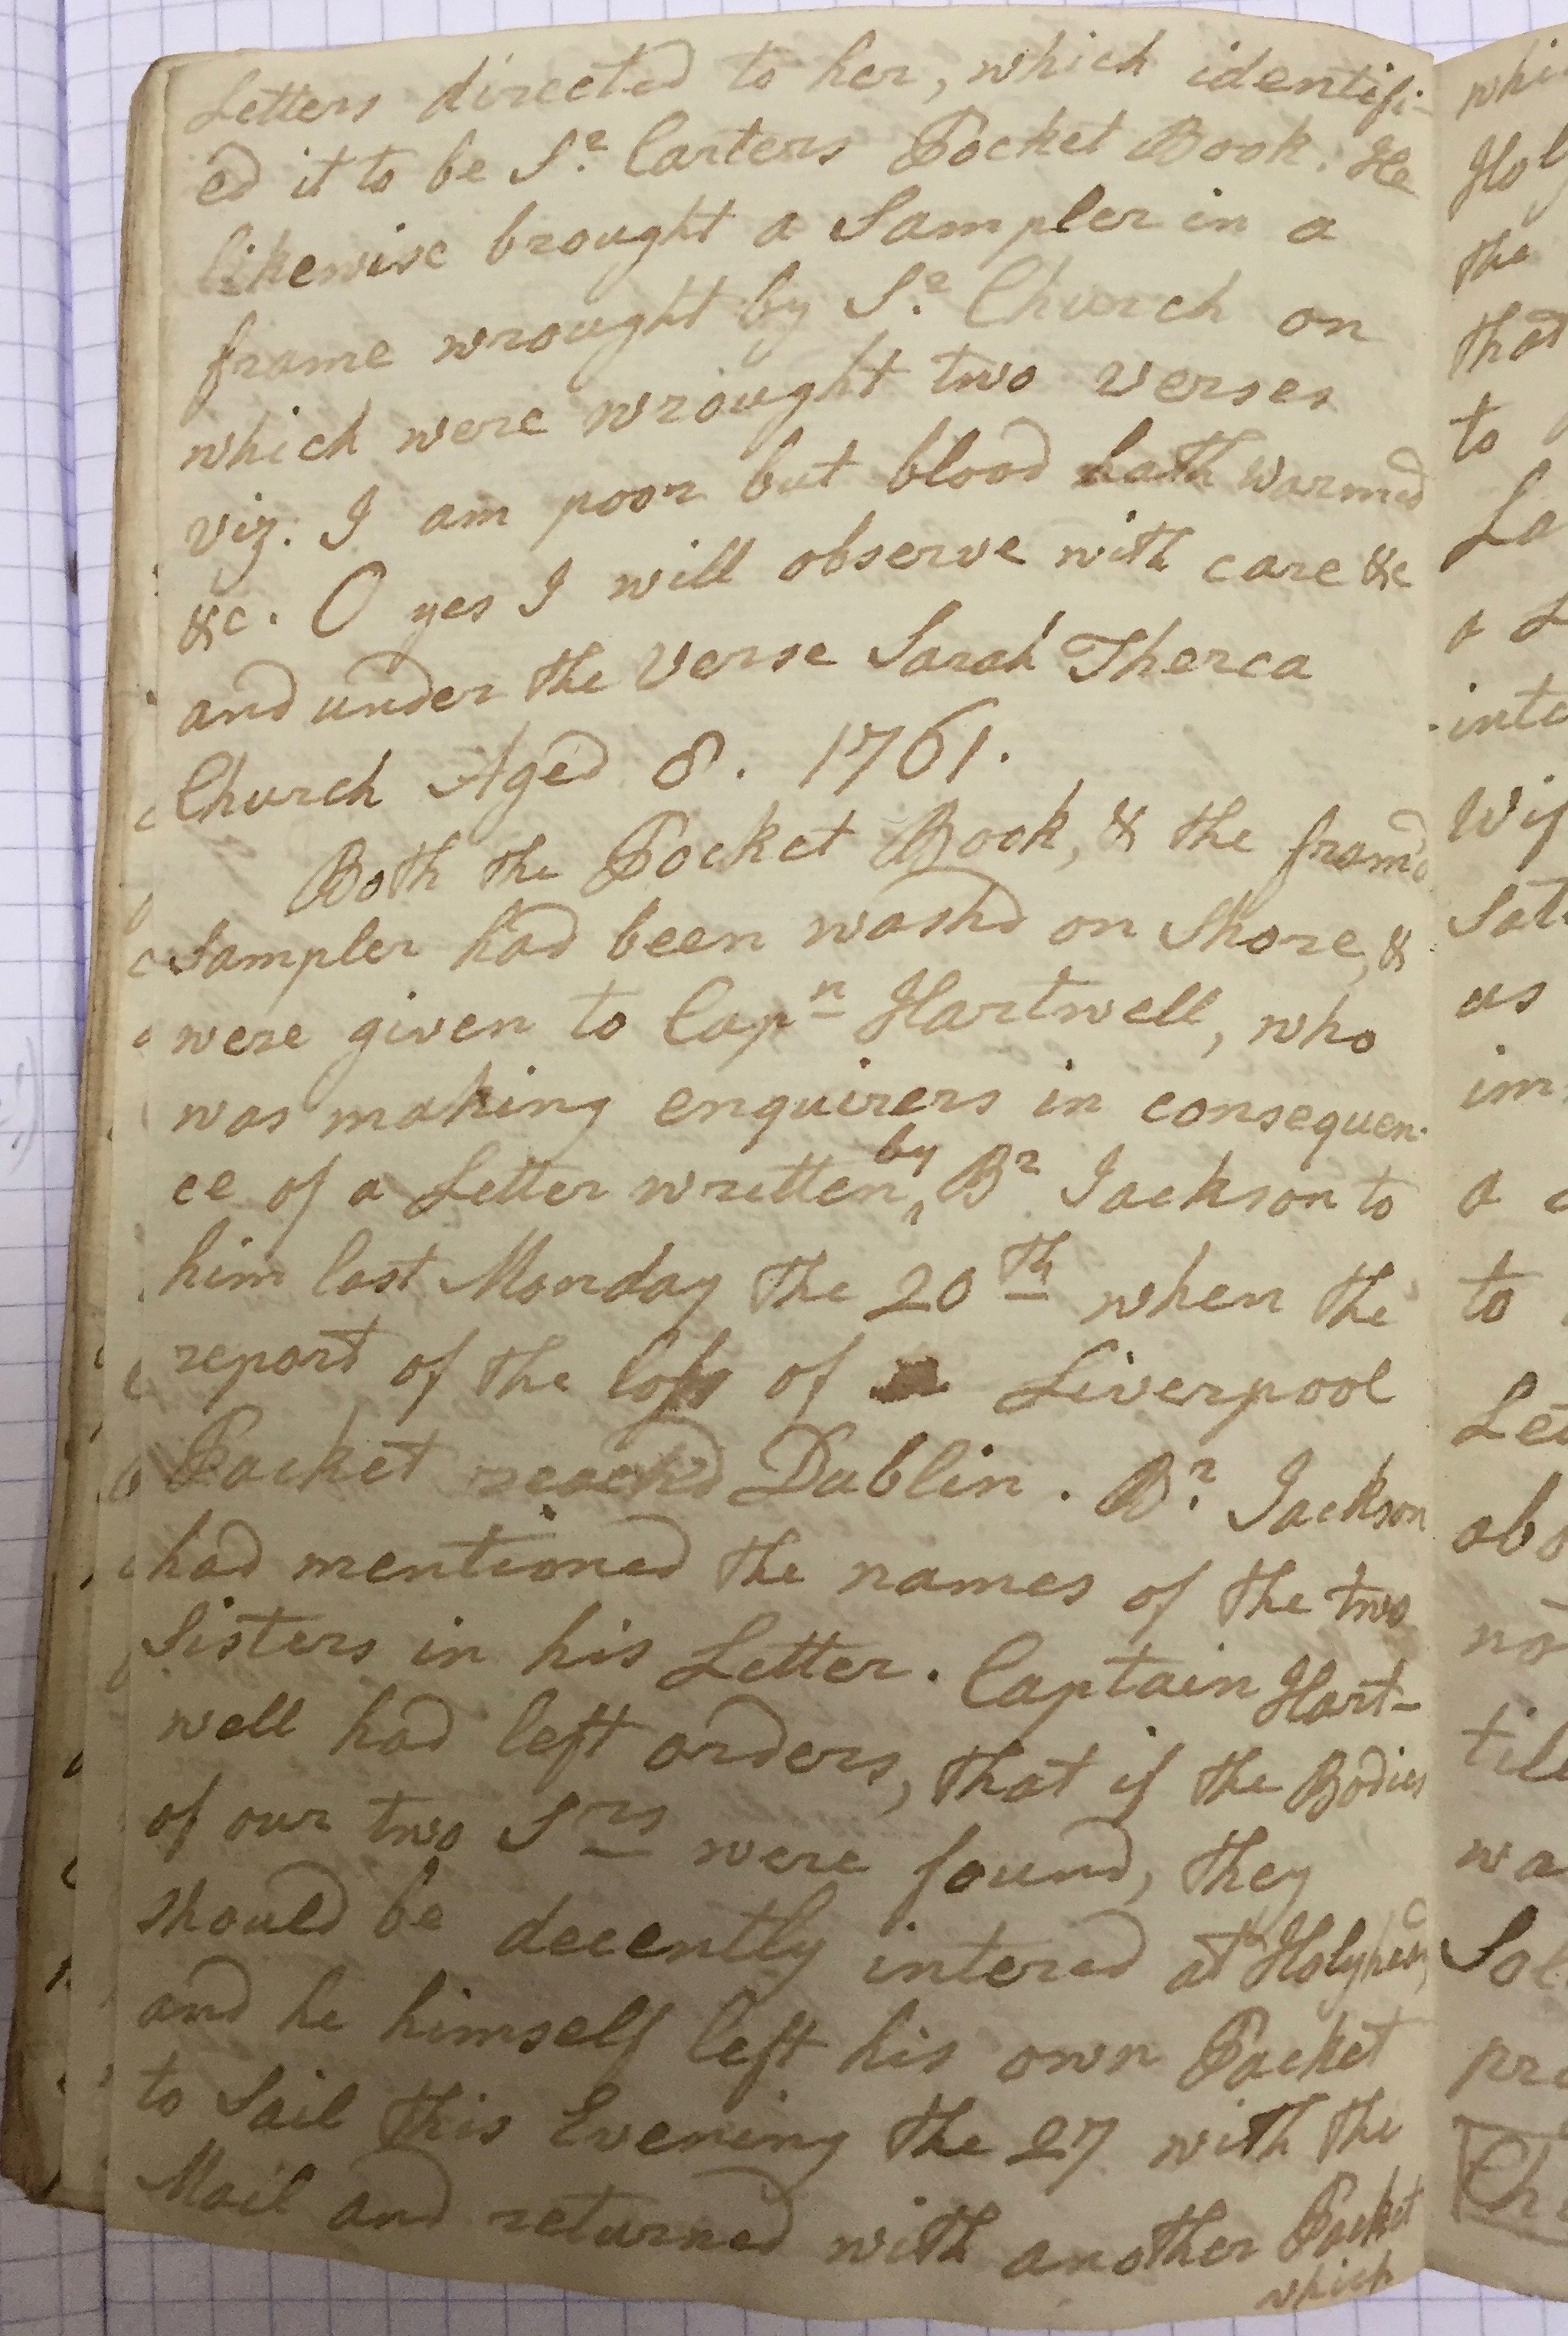 Letters directed to her, which identifi-
ed it to be Sr. Carters Pocket Book. He
likewise brought a Sampler in a
frame wrought by Sr. Church on
which were wrought two verses
viz. I am poor but blood hath warmed
&c. O yes I will observe with care &c
and under the Verse Sarah Therca
Church Aged 8. 1761.
Both the Pocket Book, & the fram'd
Sampler had been washd on Shore, &
were given to Capn Hartwell, who
was making enquirers in consequen-
ce of a Letter written by Br Jackson to
him last Monday the 20th when the
report of the loss of Liverpool
Packet reachd Dublin. Br. Jackson
had mentioned the names of the two
Sisters in his Letter. Captain Hart-
well had left orders, that if the Bodies
of our two Srs were found, they
should be decently intered at Holyhead,
and he himself left his own Packet
to Sail this Evening the 27 with the
Mail and returned with another Packet
which
whi
Hol
the
that
to
Le
a L
into
Wif
Sat
as
im
a
to
Let
abo
no
til
wa
Sol
pre
Ch